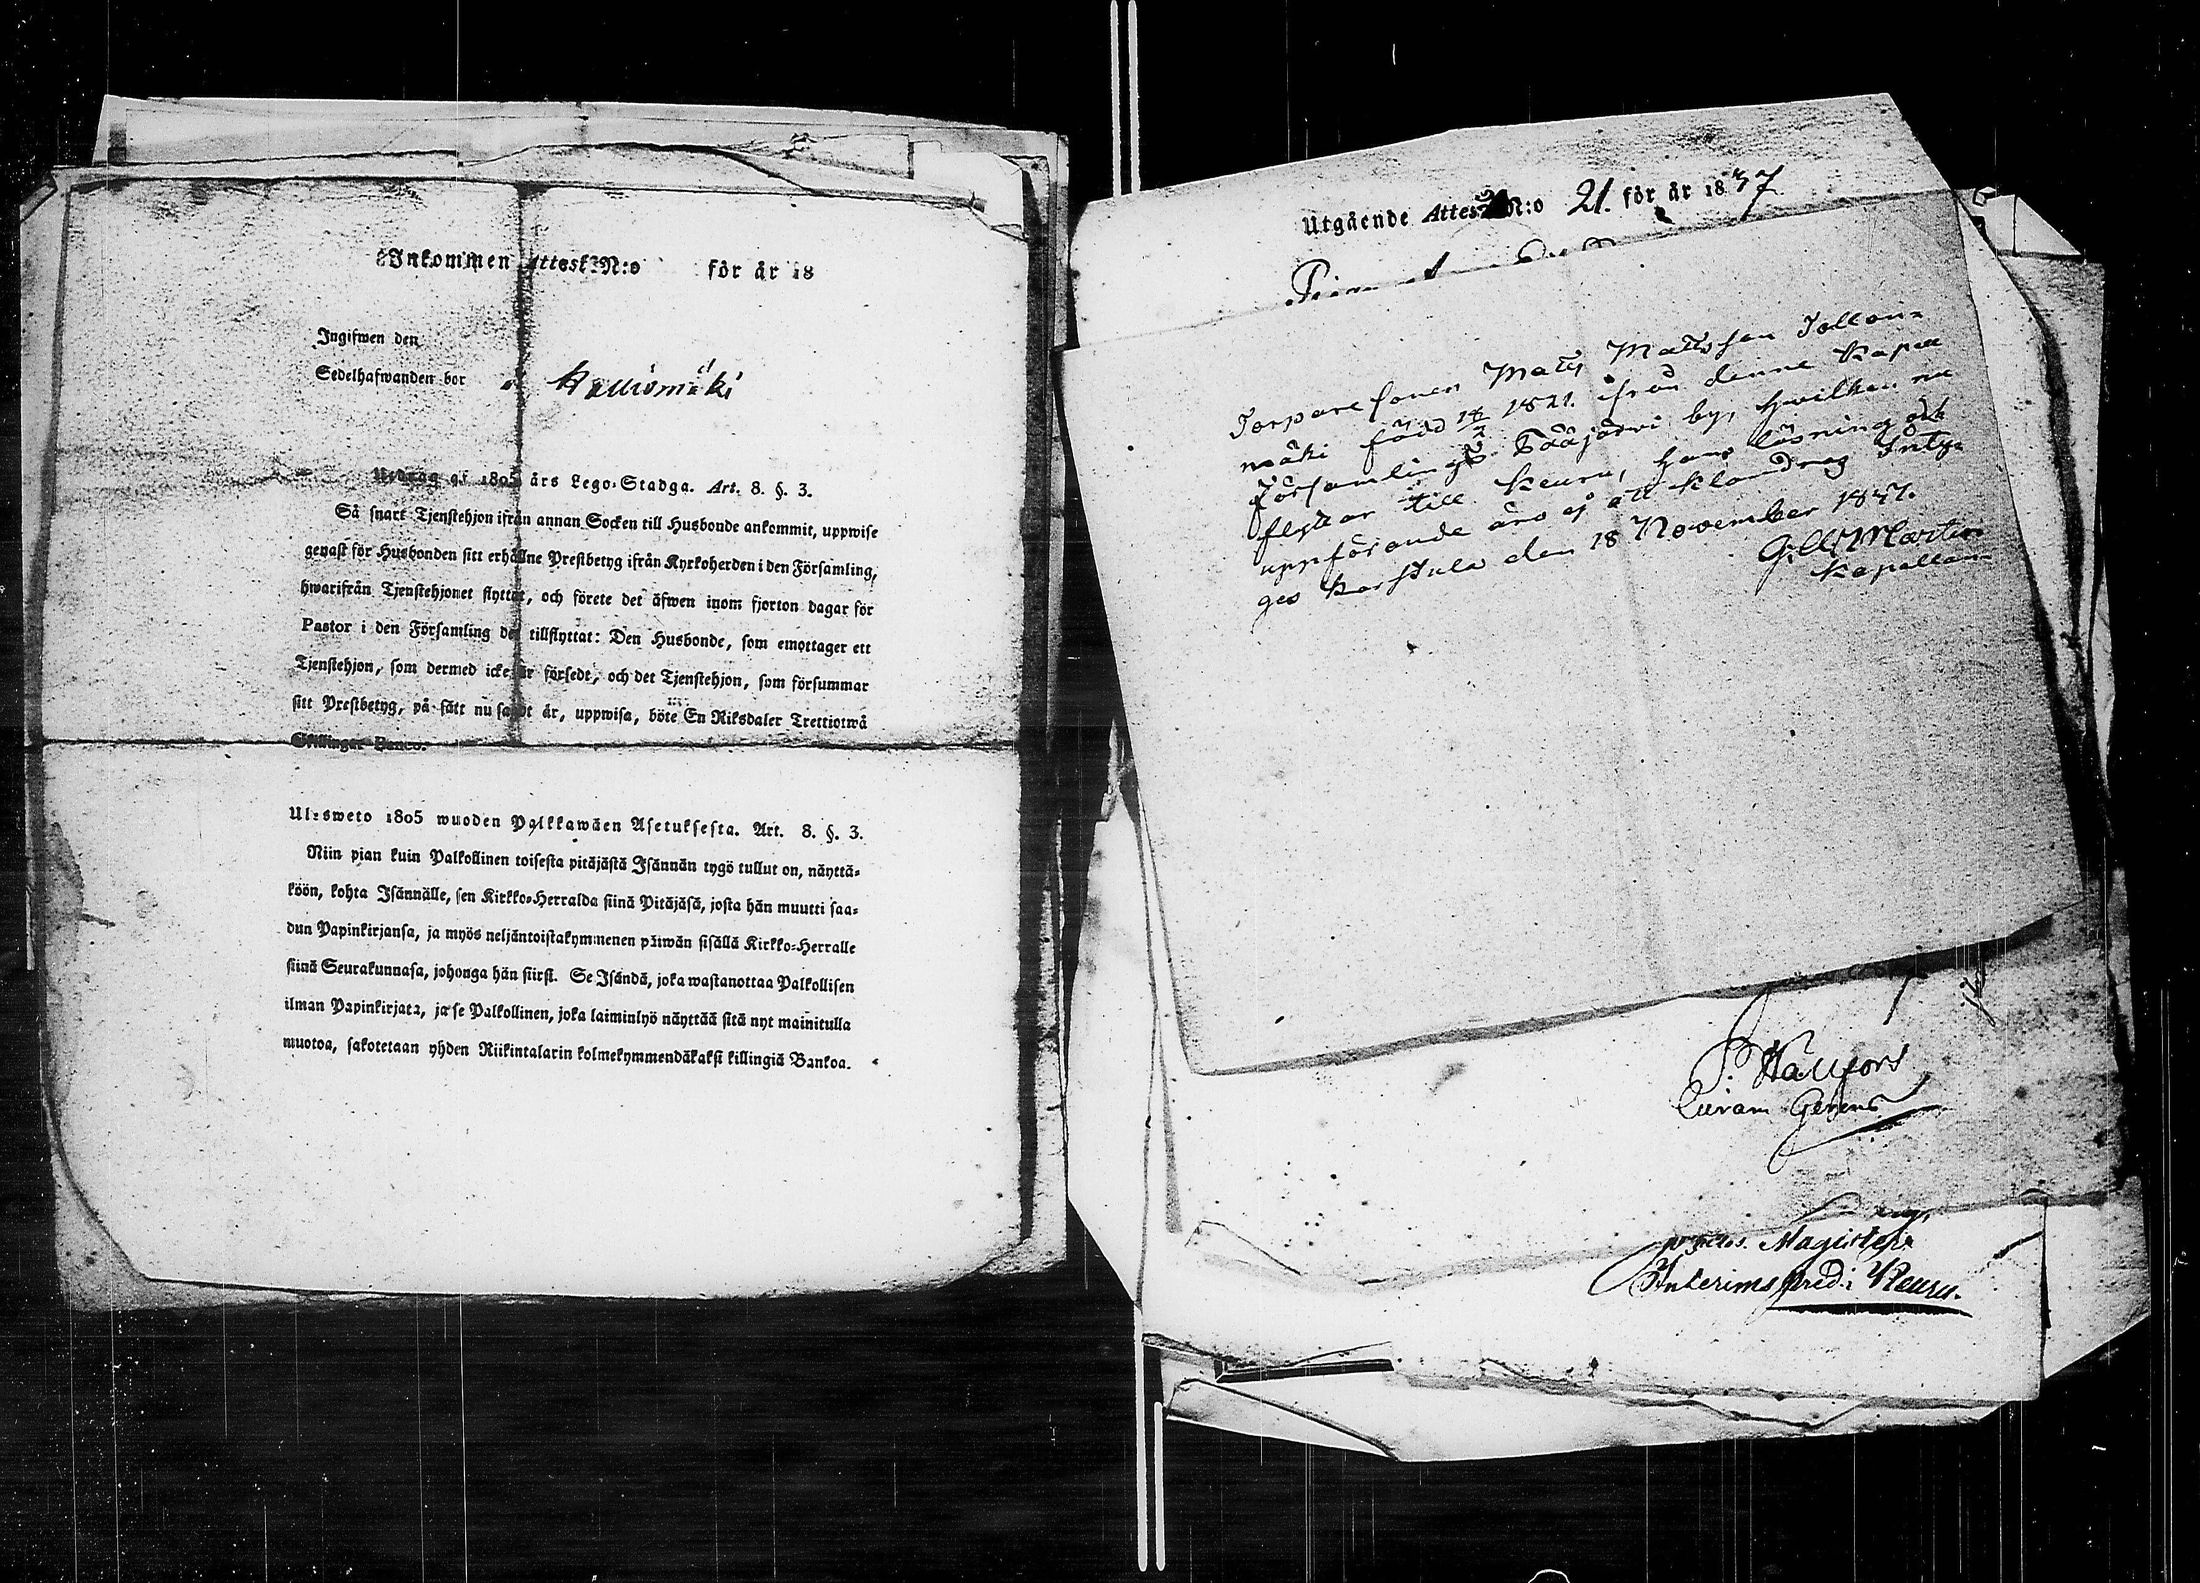 Inkommen Attest N:o för år 18
Ingifwen den
Sedelhafwanden bor å Kauismäki
Utdrag af 1805 års Lego-Stadga. Art. 8. §. 3.
Så snart Tjenstehjon ifrån annan Socken till Husbonde ankommit, uppwise
genast för Husbonden sitt erhållne Prestbetyg ifrån Kyrkoherden i den Församling,
hwarifrån Tjenstehjonet flyttat, och förete det äfwen inom fjorton dagar för
Pastor i den Församling det tillflyttat: Den Husbonde, som emottager ett
Tjenstehjon, som dermed icke är försedt, och det Tjenstehjon, som försummar
sitt Prestbetyg, på sätt nu sagdt är, uppwisa, böte En Riksdaler Trettiotwå
Skillingar Banco.
Ulosweto 1805 wuoden Palkkawäen Asetuksesta. Art. 8. §. 3.
Niin pian kuin Palkollinen toisesta pitäjästä Isännän tygö tullut on, näyttä-
köön, kohta Isännälle, sen Kirkko-Herralda siinä Pitäjäsä, josta hän muutti saa-
dun Papinkirjansa, ja myös neljäntoistakymmenen päiwän sisällä Kirkko-Herralle
siinä Seurakunnasa, johonga hän siirsi. Se Isändä, joka wastanottaa Palkollisen
ilman Papinkirjata, ja se Palkollinen, joka laiminlyö näyttää sitä nyt mainitulla
muotoa, sakotetaan yhden Riikintalarin kolmekymmendäkaksi killingiä Bankoa.
Utgående Attest N:o 21. för år 1837
Torpare sonen Matts Mattsson Jollon-
mäki född 18/2 1821. från denne Kapell
församlings Sääjärwi by, hwilken nu
flyttar till Keuru, hans läsning och
uppförande äro ej att klandras Intyg-
ges Karstula den 18 November 1837.
G. W. Martin
Kapellan
P. Hallfors
Curam Gerens
Magister
Interims pred: i Keuru.